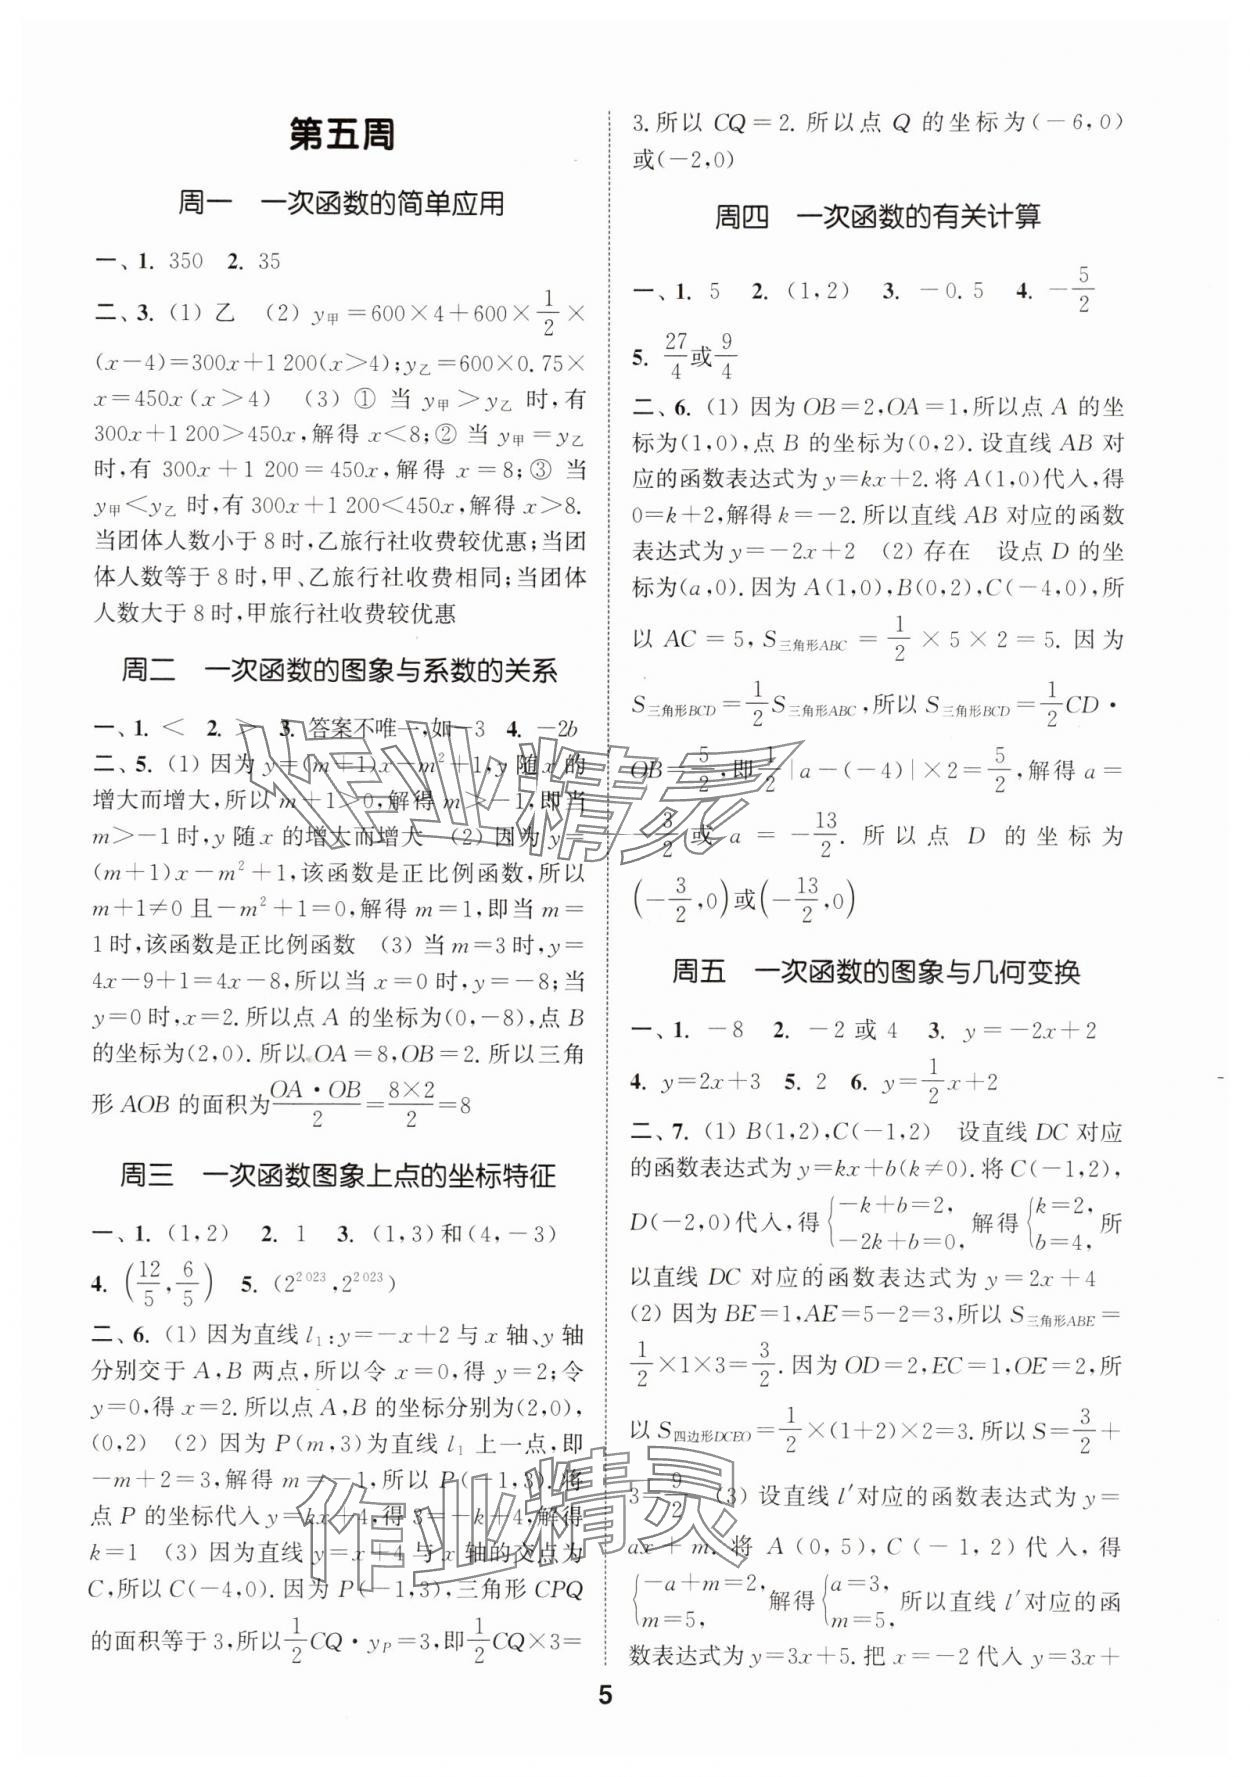 第五周
周一　一次函数的简单应用
一、1. 350　2. 35
二、3. (1) 乙　(2) y甲=600×4+600×1/2×
(x-4)=300x+1 200(x>4);y乙=600×0.75×
x=450x(x>4)　(3) ① 当 y甲>y乙 时,有
300x+1 200>450x,解得 x<8;② 当 y甲=y乙
时,有 300x+1 200=450x,解得 x=8;③ 当
y甲<y乙 时,有 300x+1 200<450x,解得 x>8.
当团体人数小于 8 时,乙旅行社收费较优惠;当团
体人数等于 8 时,甲、乙旅行社收费相同;当团体
人数大于 8 时,甲旅行社收费较优惠
周二　一次函数的图象与系数的关系
一、1. <　2. >　3. 答案不唯一,如-3　4. -2b
二、5. (1) 因为 y=(m+1)x-m²+1,y 随 x 的
增大而增大,所以 m+1>0,解得 m>-1,即当
m>-1 时,y 随 x 的增大而增大　(2) 因为 y=
(m+1)x-m²+1,该函数是正比例函数,所以
m+1≠0 且-m²+1=0,解得 m=1,即当 m=
1 时,该函数是正比例函数　(3) 当 m=3 时,y=
4x-9+1=4x-8,所以当 x=0 时,y=-8;当
y=0 时,x=2.所以点 A 的坐标为(0,-8),点 B
的坐标为(2,0).所以 OA=8,OB=2.所以三角
形 AOB 的面积为OA·OB/2=8×2/2=8
周三　一次函数图象上点的坐标特征
一、1. (1,2)　2. 1　3. (1,3)和(4,-3)
4. (12/5,6/5)　5. (2^2 023,2^2 023)
二、6. (1) 因为直线 l₁:y=-x+2 与 x 轴、y 轴
分别交于 A,B 两点,所以令 x=0,得 y=2;令
y=0,得 x=2.所以点 A,B 的坐标分别为(2,0),
(0,2)　(2) 因为 P(m,3)为直线 l₁ 上一点,即
-m+2=3,解得 m=-1,所以 P(-1,3).将
点 P 的坐标代入 y=kx+4,得 3=-k+4,解得
k=1　(3) 因为直线 y=x+4 与 x 轴的交点为
C,所以 C(-4,0).因为 P(-1,3),三角形 CPQ
的面积等于 3,所以1/2CQ·yP=3,即1/2CQ×3=
3.所以 CQ=2.所以点 Q 的坐标为(-6,0)
或(-2,0)
周四　一次函数的有关计算
一、1. 5　2. (1,2)　3. -0.5　4. -5/2
5. 27/4或9/4
二、6. (1) 因为 OB=2,OA=1,所以点 A 的坐
标为(1,0),点 B 的坐标为(0,2).设直线 AB 对
应的函数表达式为 y=kx+2.将 A(1,0)代入,得
0=k+2,解得 k=-2.所以直线 AB 对应的函数
表达式为 y=-2x+2　(2) 存在　设点 D 的坐
标为(a,0).因为 A(1,0),B(0,2),C(-4,0),所
以 AC=5,S三角形ABC=1/2×5×2=5.因为
S三角形BCD=1/2S三角形ABC,所以 S三角形BCD=1/2CD·
OB=5/2,即1/2|a-(-4)|×2=5/2,解得 a=
-3/2或 a=-13/2.所以点 D 的坐标为
(-3/2,0)或(-13/2,0)
周五　一次函数的图象与几何变换
一、1. -8　2. -2 或 4　3. y=-2x+2
4. y=2x+3　5. 2　6. y=1/2x+2
二、7. (1) B(1,2),C(-1,2)　设直线 DC 对应
的函数表达式为 y=kx+b(k≠0).将 C(-1,2),
D(-2,0)代入,得{-k+b=2, -2k+b=0, 解得{k=2, b=4, 所
以直线 DC 对应的函数表达式为 y=2x+4
(2) 因为 BE=1,AE=5-2=3,所以 S三角形ABE=
1/2×1×3=3/2.因为 OD=2,EC=1,OE=2,所
以 S四边形DCEO=1/2×(1+2)×2=3.所以 S=3/2+
3=9/2　(3) 设直线 l′对应的函数表达式为 y=
ax+m.将 A(0,5),C(-1,2)代入,得
{-a+m=2, m=5, 解得{a=3, m=5, 所以直线 l′对应的函
数表达式为 y=3x+5.把 x=-2代入 y=3x+
5
作业精灵
作业精灵